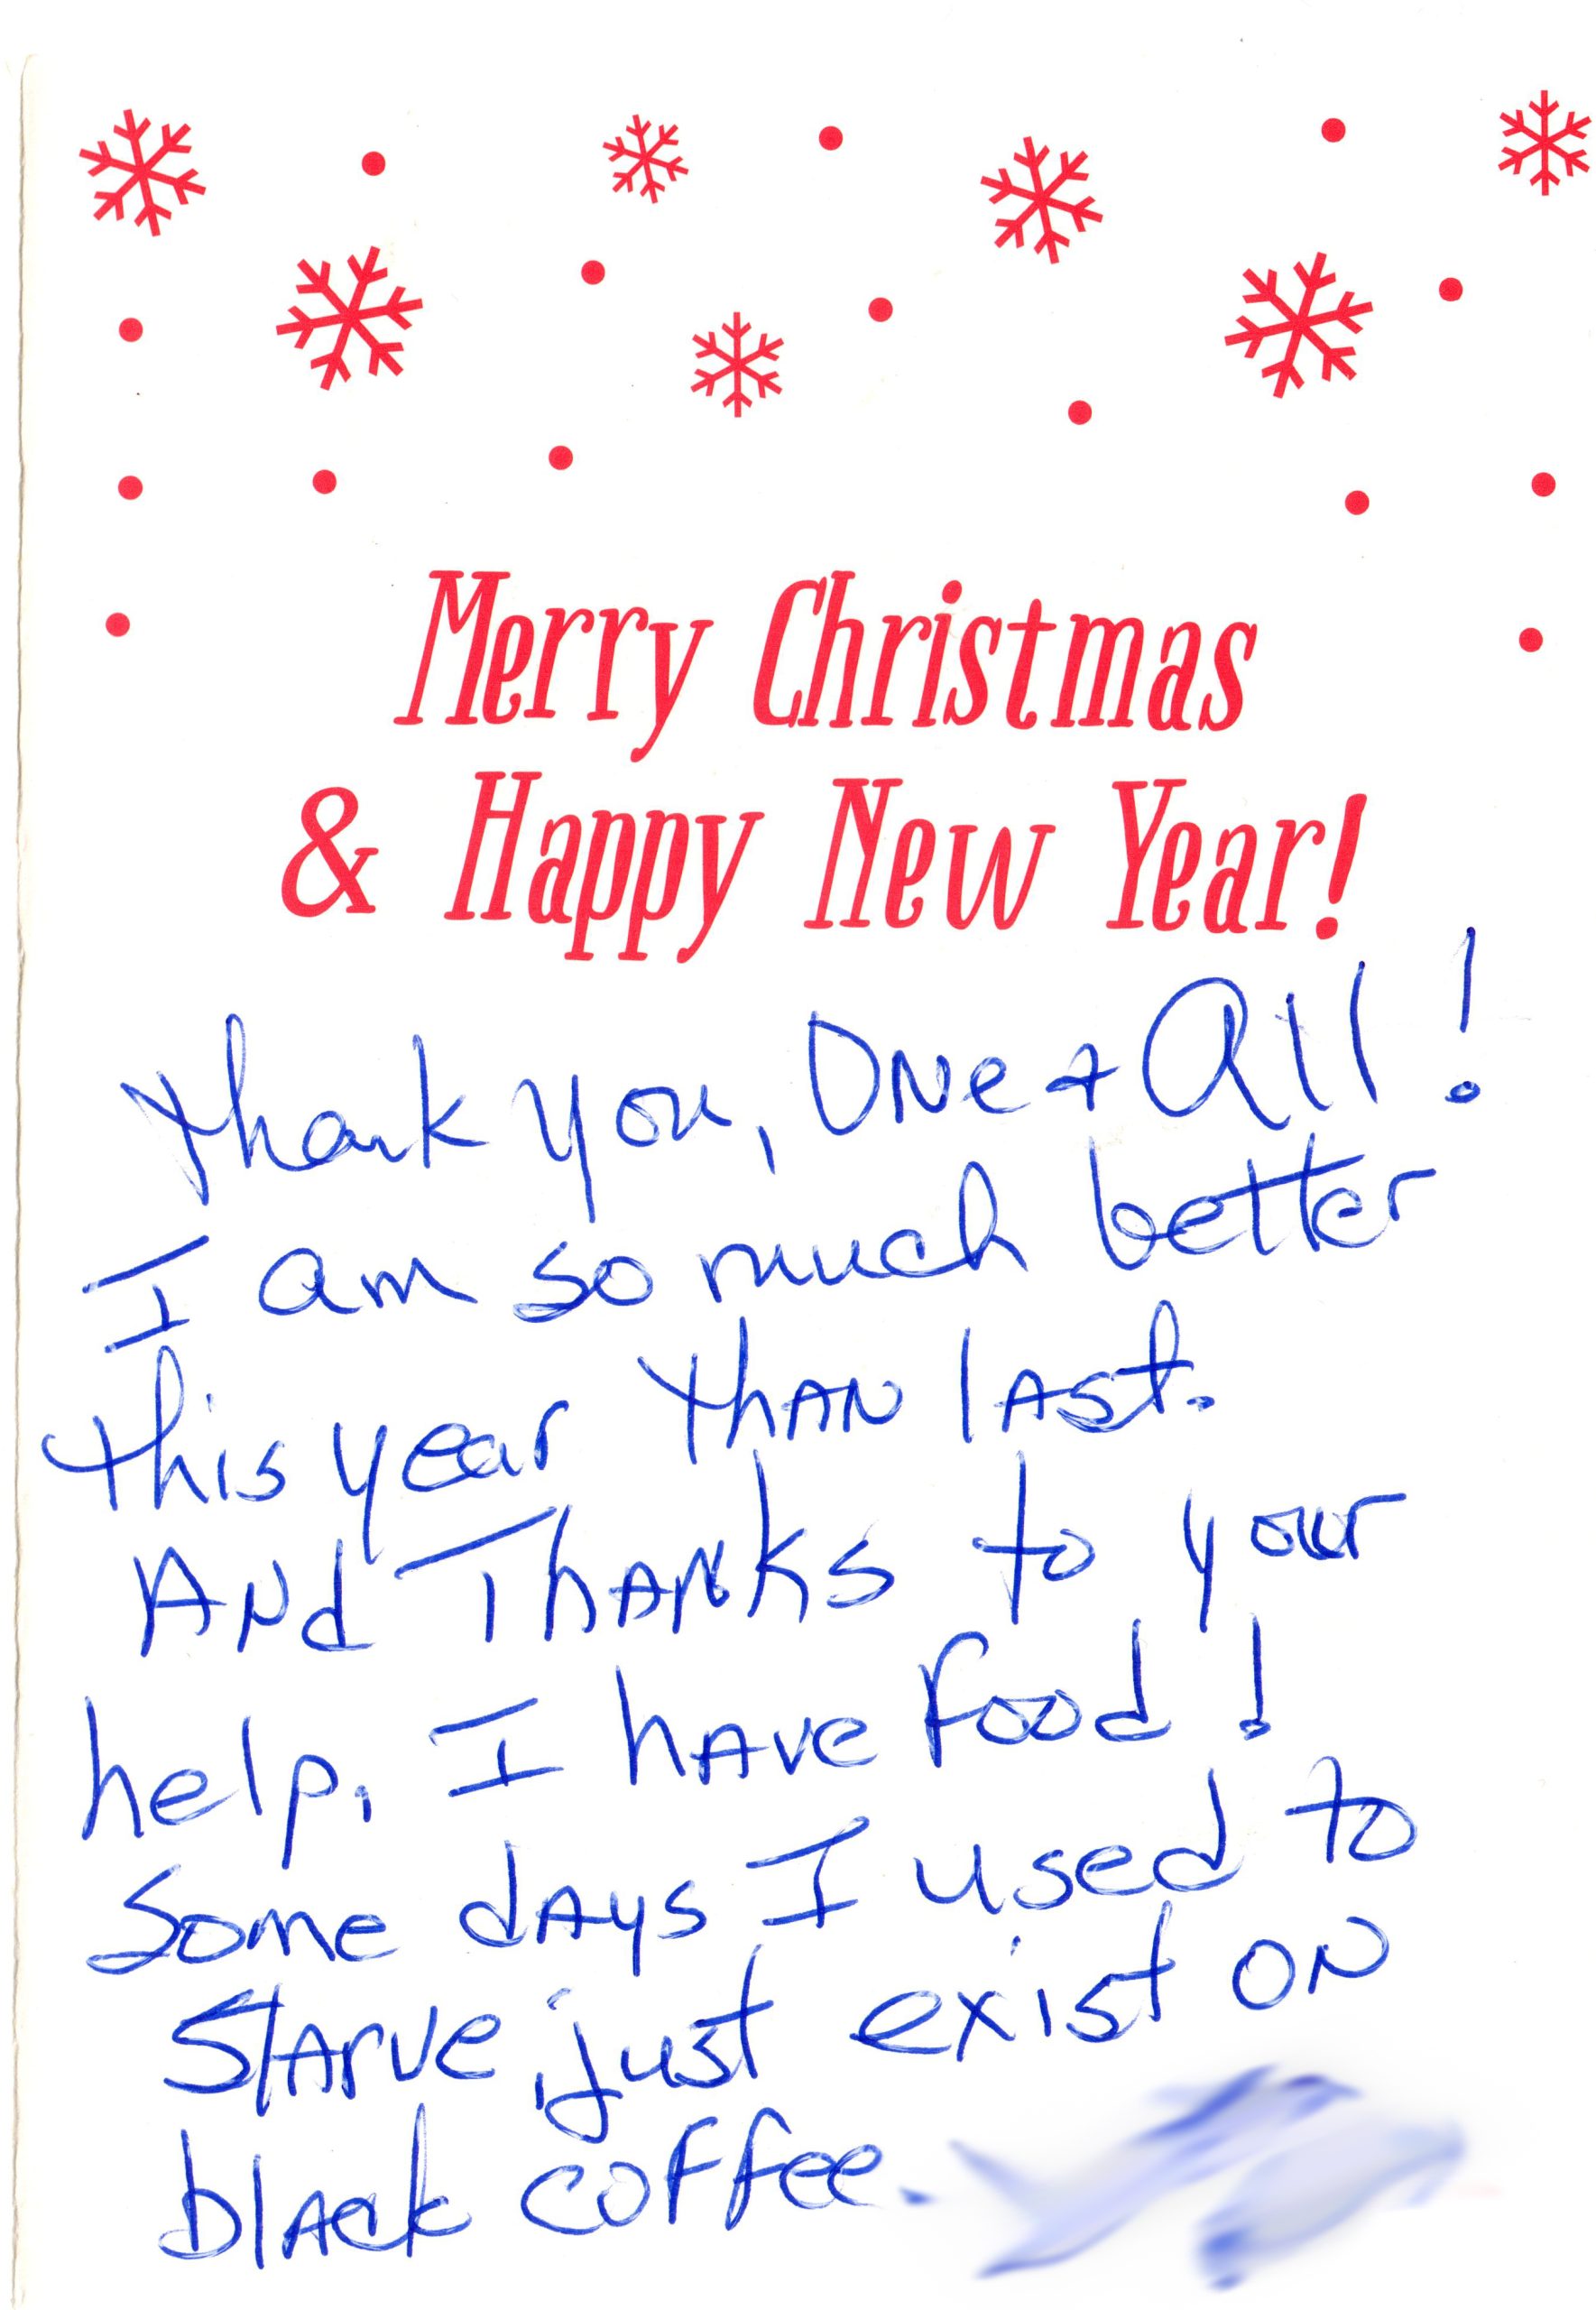 Merry Christmas
& Happy New Year!
Thank you, One + All!
I am so much better
this year than last.
And Thanks to your
help, I have food!
Some days I used to
starve, just exist on
black coffee.